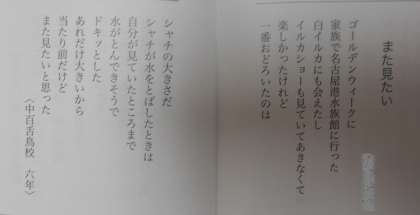 また見たい
ゴールデンウィークに
家族で名古屋港水族館に行った
白イルカにも会えたし
イルカショーも見ていてあきなくて
楽しかったけれど
一番おどろいたのは
シャチの大きさだ
シャチが水をとばしたときは
自分が見ていたところまで
水がとんできそうで
ドキッとした
あれだけ大きいから
当たり前だけど
また見たいと思った
〈中百舌鳥校　六年〉